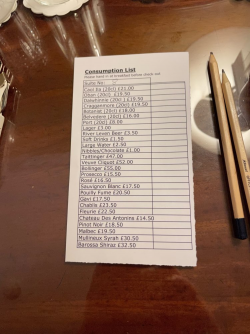 Consumption List
Please hand in at breakfast before check out
Suite No:
Caol Ila (20cl) £21.00
Oban (20cl) £19.50
Dalwhinnie (20cl) £19.50
Cragganmore (20cl) £19.50
Botanist (20cl) £18.00
Belvedere (20cl) £16.00
Port (20cl) £8.00
Lager £3.00
River Level Beer £3.50
Soft Drinks £1.50
Large Water £2.50
Nibbles/Chocolate £1.00
Taittinger £47.00
Veuve Cliquot £52.00
Bollinger £55.00
Prosecco £15.50
Rosé £16.50
Sauvignon Blanc £17.50
Pouilly Fume £20.50
Gavi £17.50
Chablis £23.50
Fleurie £22.50
Chateau Des Antonins £14.50
Pinot Noir £18.50
Malbec £19.50
Mullineux Syrah £30.50
Barossa Shiraz £32.50